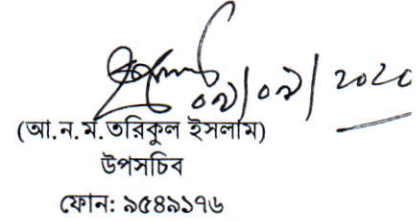 ০৯/০৯/২০২০
(আ.ন.ম.তরিকুল ইসলাম)
উপসচিব
ফোন: ৯৫৪৯১৭৬